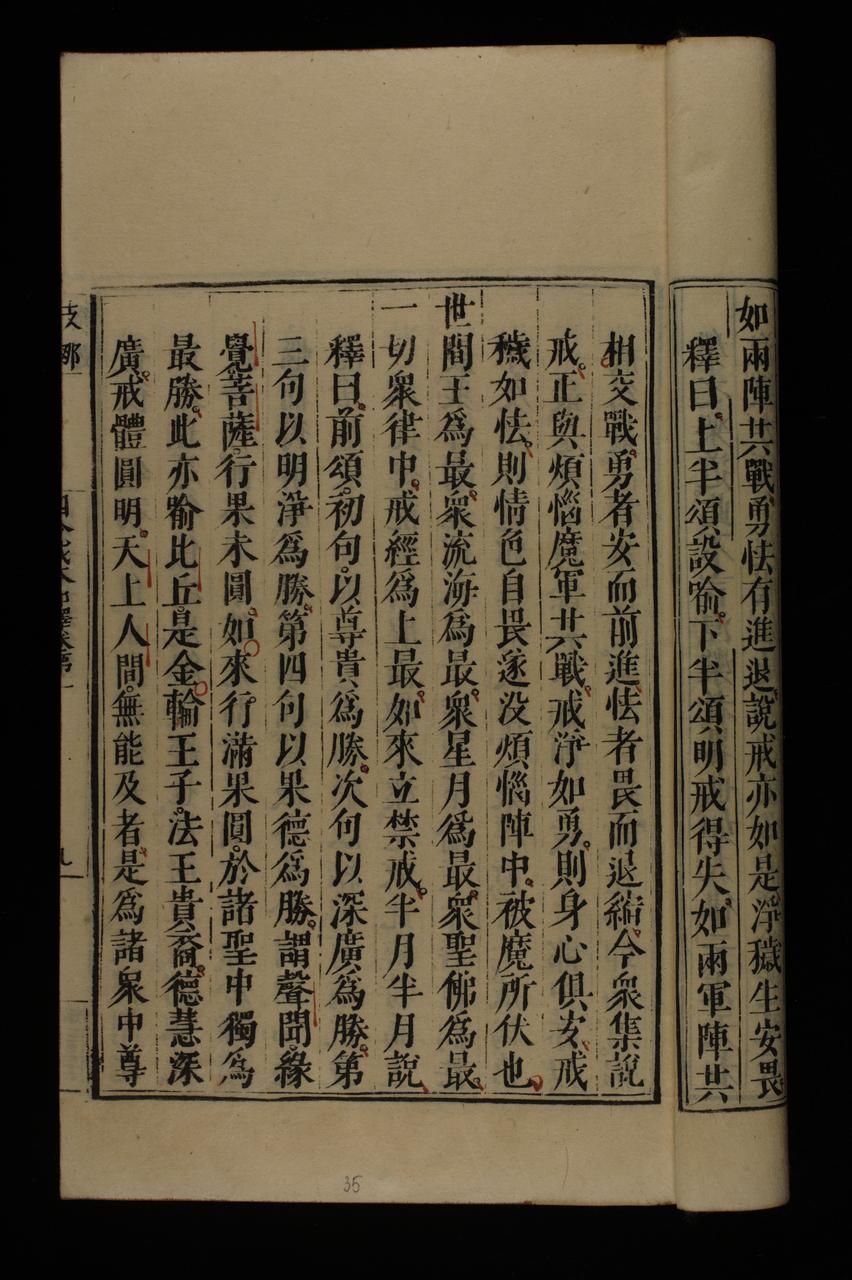 如兩陣共戰勇怯有進退說戒亦如是淨穢生安畏
釋曰上半頌設喻下半頌明戒得失如兩軍陣共
相交戰勇者安而前進怯者畏而退縮今衆集說
戒正與煩惱魔軍共戰戒淨如勇則身心俱安戒
穢如怯則情色自畏遂没煩惱陣中被魔所伏也
世間王爲最衆流海爲最衆星月爲最衆聖佛爲最
一切衆律中戒經爲上最如來立禁戒半月半月說
釋曰前頌初句以尊貴爲勝次句以深廣爲勝第
三句以明淨爲勝第四句以果德爲勝謂聲聞緣
覺菩薩行果未圓如來行滿果圓於諸聖中獨爲
最勝此亦喻比丘是金輪王子法王貴裔德慧深
廣戒體圓明天上人間無能及者是爲諸衆中尊
支那
九
35